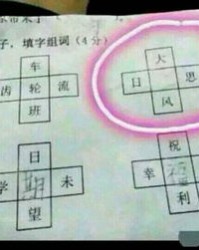 子，填字组词（4分）
车
齿 轮 流
班
大
日 思
风
日
学 期 未
望
祝
幸 福
利